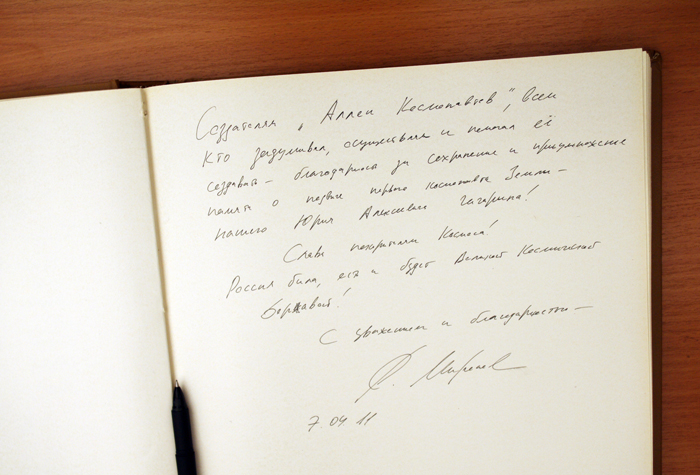 Создателям „Аллеи Космонавтов", всем
кто задумывал, осуществлял и помогал её
создавать – благодарность за сохранение и приумножение
памяти о подвиге первого космонавта Земли –
нашего Юрия Алексеевича Гагарина!
Слава покорителям Космоса!
Россия была, есть и будет Великой Космической
Державой!
С уважением и благодарностью –
С. Миронов
7.04.11